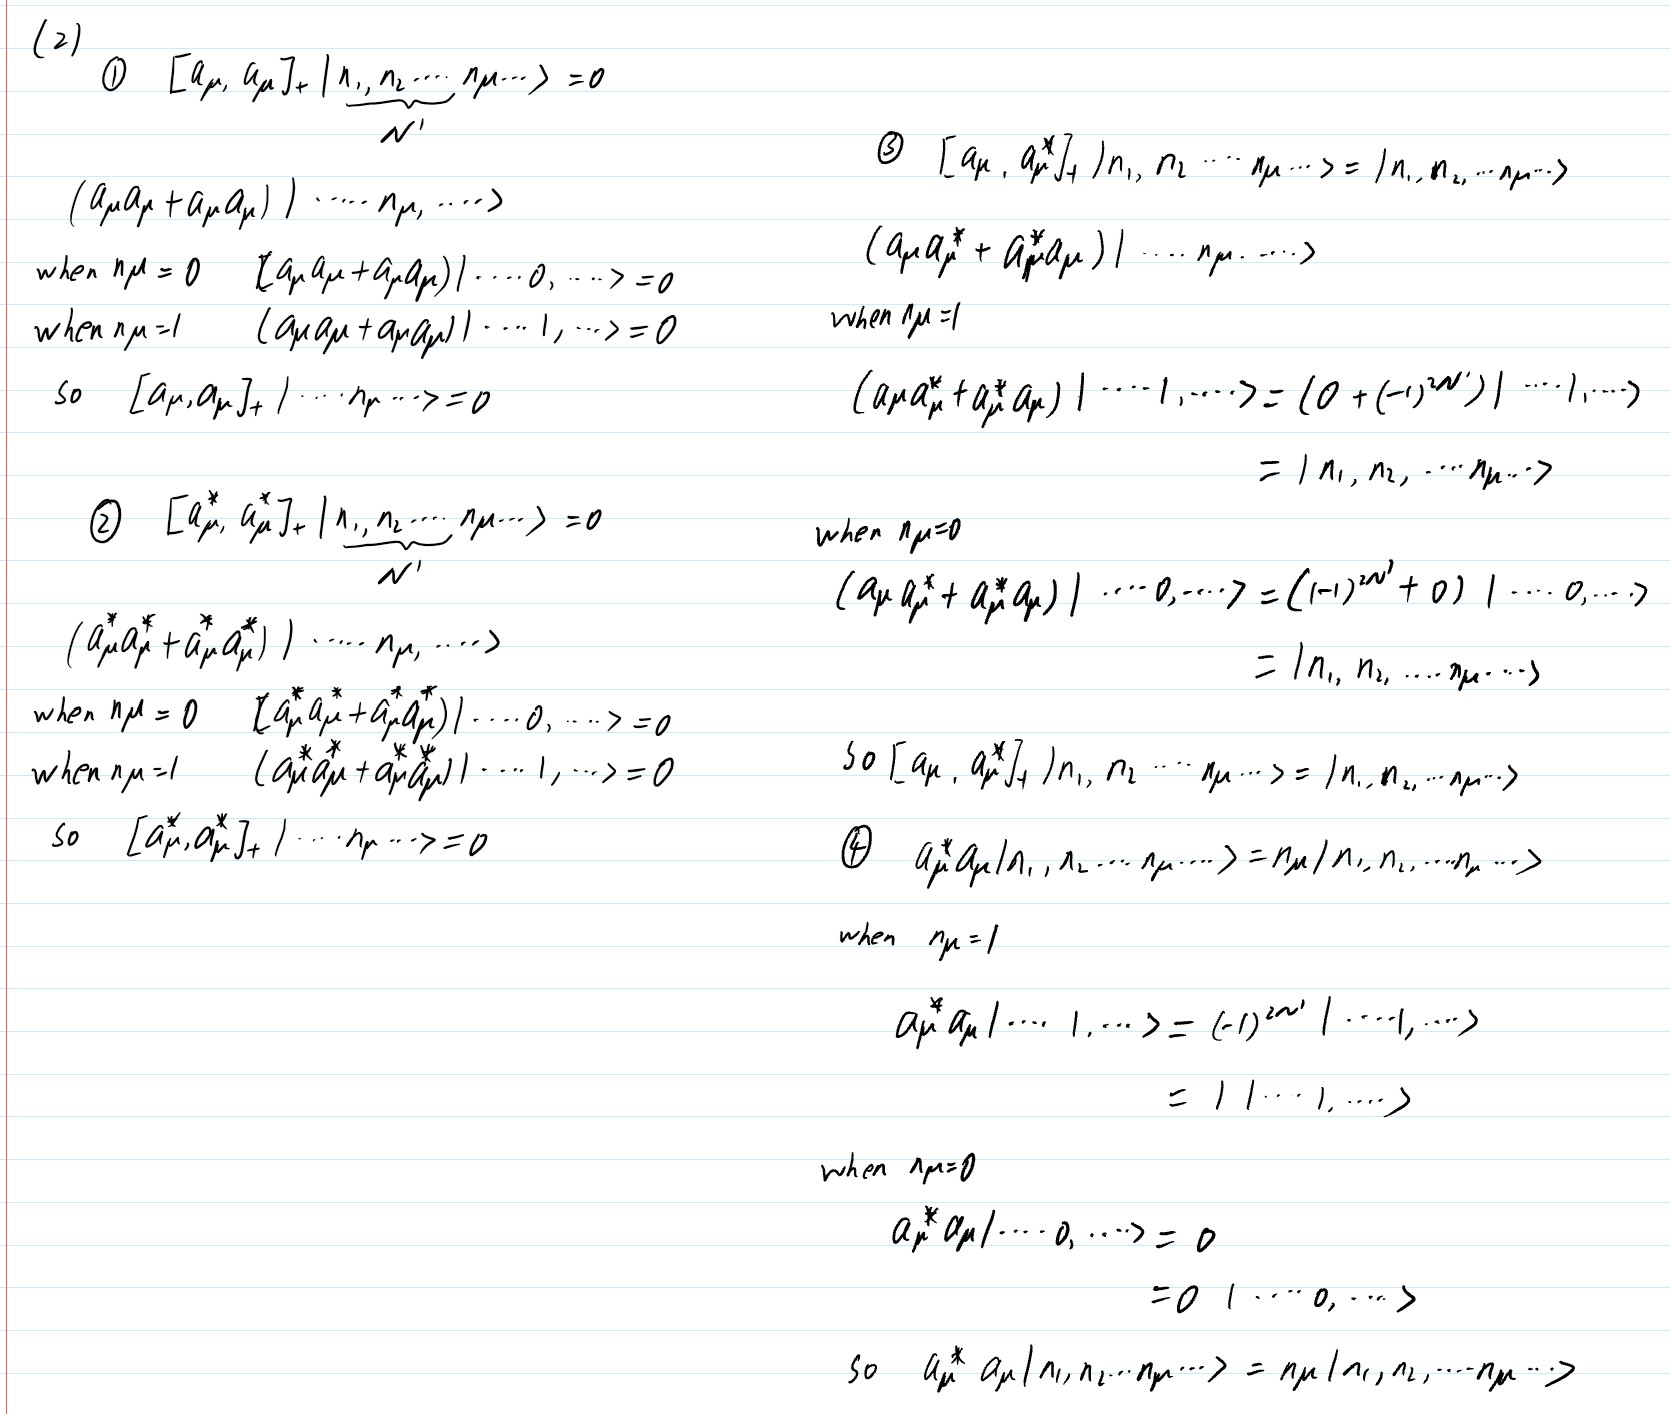 (2)
① [aμ, aμ]₊ | n₁, n₂ ···· nμ ··· > = 0
N'
(aμ aμ + aμ aμ) | ····· nμ, ····>
when nμ = 0 [aμ aμ + aμ aμ) | ····0, ····> = 0
when nμ=1 (aμ aμ + aμ aμ) | ···· 1, ···> = 0
so [aμ, aμ]₊ | ···· nμ ···> = 0
② [aμ*, aμ*]₊ | n₁, n₂ ···· nμ ··· > = 0
N'
(aμ* aμ* + aμ* aμ*) | ····· nμ, ····>
when nμ = 0 [aμ* aμ* + aμ* aμ*) | ····0, ····> = 0
when nμ=1 (aμ* aμ* + aμ* aμ*) | ···· 1, ···> = 0
so [aμ*, aμ*]₊ | ···· nμ ···> = 0
③ [aμ, aμ*]₊ | n₁, n₂ ···· nμ ···> = | n₁, n₂, ··· nμ ···>
(aμ aμ* + aμ* aμ) | ···· nμ· ····>
when nμ=1
(aμ aμ* + aμ* aμ) | ···· 1, ····> = (0 + (-1)²ᴺ') | ···· 1, ····>
= | n₁, n₂, ···· nμ ···>
when nμ=0
(aμ aμ* + aμ* aμ) | ···· 0, ····> = ((-1)²ᴺ' + 0) | ···· 0, ····>
= | n₁, n₂, ···· nμ ····>
so [aμ, aμ*]₊ | n₁, n₂ ···· nμ ···> = | n₁, n₂, ··· nμ ···>
④ aμ* aμ | n₁, n₂ ···· nμ ····> = nμ | n₁, n₂, ···· nμ ···>
when nμ = 1
aμ* aμ | ···· 1, ···> = (-1)²ᴺ' | ···· 1, ····>
= 1 | ···· 1, ····>
when nμ=0
aμ* aμ | ···· 0, ····> = 0
= 0 | ···· 0, ····>
so aμ* aμ | n₁, n₂ ··· nμ ···> = nμ | n₁, n₂, ···· nμ ···>